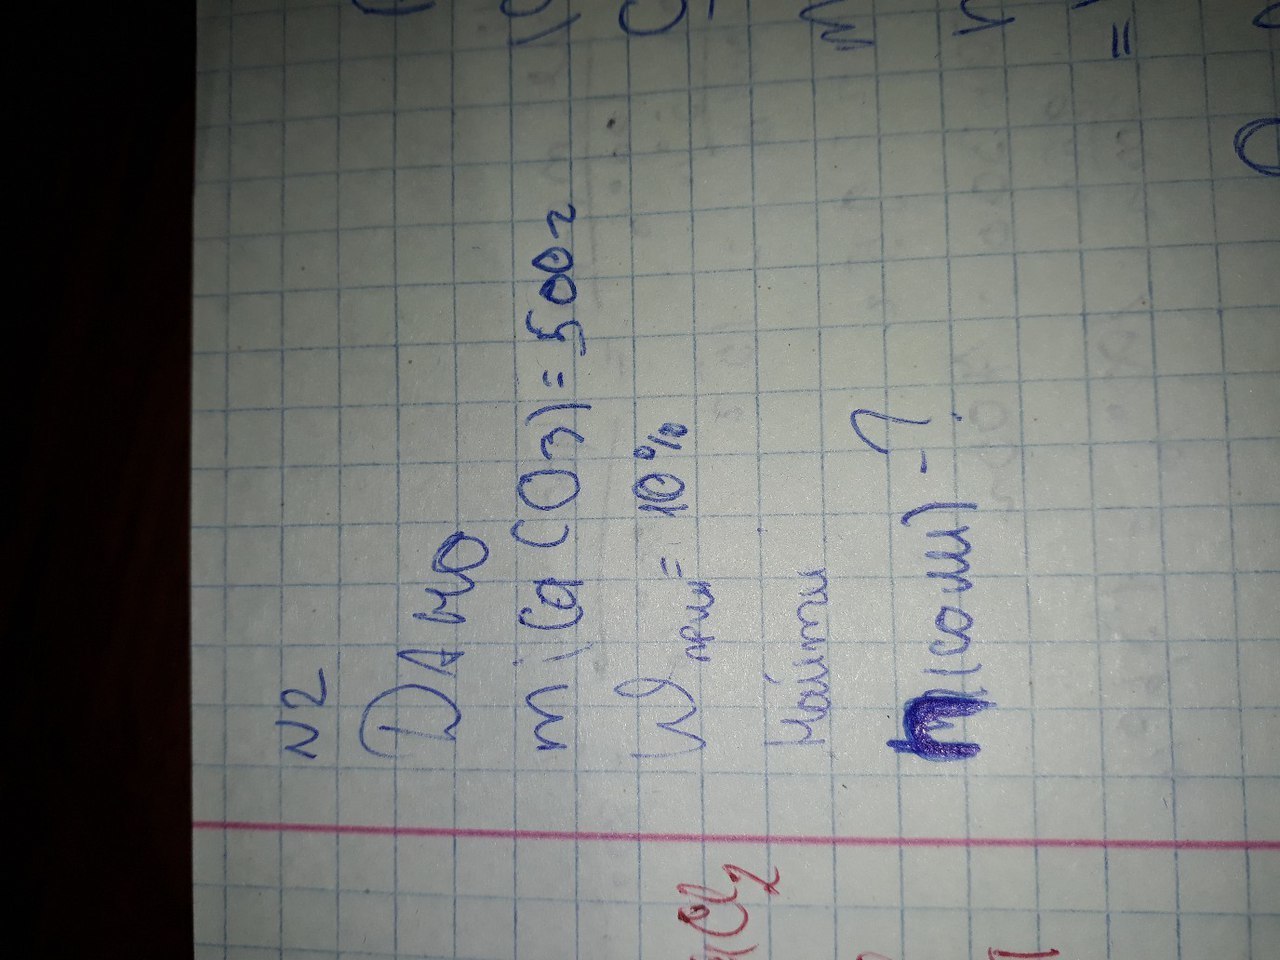 N2
Дано
m(CaCO3)=500г
W прим = 10%
Найти
n(соли)-?
Cl2